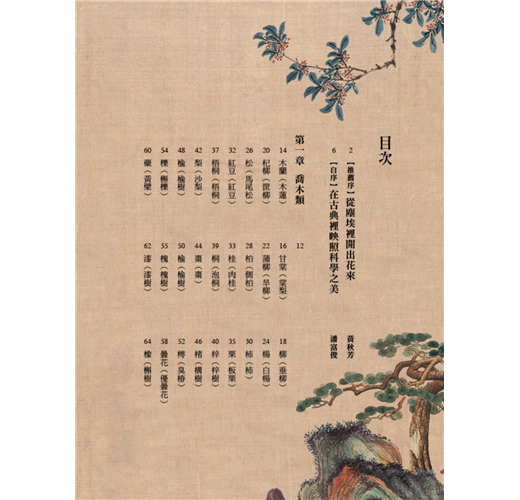 目次
2 【推薦序】從塵埃裡開出花來 黃秋芳
6 【自序】在古典裡映照科學之美 潘富俊
第一章 喬木類 12
14 木蘭（木蓮） 16 甘棠（棠梨） 18 柳（垂柳）
20 杞柳（筐柳） 22 蒲柳（旱柳） 24 楊（白楊）
26 松（馬尾松） 28 柏（側柏） 30 柿（柿）
32 紅豆（紅豆） 33 桂（肉桂） 35 栗（板栗）
37 梧桐（梧桐） 39 桐（泡桐） 40 梓（梓樹）
42 梨（沙梨） 44 棗（棗） 46 楮（構樹）
48 榆（榆樹） 50 榆（榆樹） 52 樗（臭椿）
54 櫟（槲櫟） 55 槐（槐樹） 58 曇花（優曇花）
60 蘗（黃蘗） 62 漆（漆樹） 64 橡（槲樹）